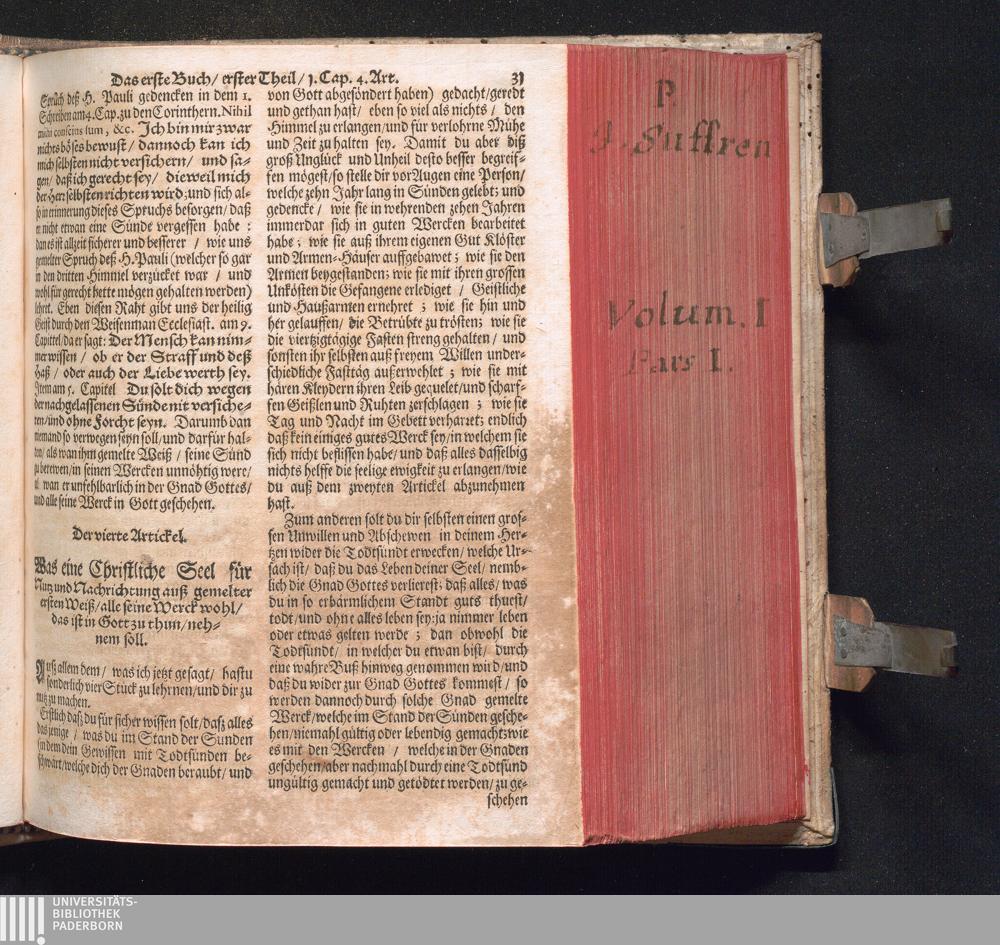 Das erste Buch/ erster Theil/ 1. Cap. 4. Art. 31
Spruch deß H. Pauli gedencken in dem 1.
Schreiben am 4. Cap. zu den Corinthern. Nihil
mihi conscius sum, &c. Ich bin mir zwar
nichts böses bewust/ dannoch kan ich
mich selbsten nicht versichern/ und sa-
gen/ daß ich gerecht sey/ dieweil mich
der Herr selbsten richten wird; und sich al-
so in erinnerung dieses Spruchs besorgen/ daß
er nicht etwan eine Sünde vergessen habe :
dan es ist allzeit sicherer und besserer / wie uns
gemelter Spruch deß H. Pauli (welcher so gar
in den dritten Himmel verzücket war / und
wohl für gerecht hette mögen gehalten werden)
lehret. Eben diesen Raht gibt uns der heilig
Geist durch den Weisenman Ecclesiast. am 9.
Capittel/ da er sagt: Der Mensch kan nim-
mer wissen / ob er der Straff und deß
Haß / oder auch der Liebe werth sey.
Item am 5. Capitel Du solt dich wegen
der nachgelassenen Sünde nit versiche-
ren/ und ohne Forcht seyn. Darumb dan
niemand so verwegen seyn soll/ und darfür hal-
ten/ als wan ihm gemelte Weiß / seine Sünd
zu berewen/ in seinen Wercken unnöhtig were/
wan er unfehlbarlich in der Gnad Gottes/
und alle seine Werck in Gott geschehen.
Der vierte Artickel.
Was eine Christliche Seel für
Nutz und Nachrichtung auß gemelter
ersten Weiß/ alle seine Werck wohl/
das ist in Gott zu thun/ neh-
nem soll.
Auß allem dem / was ich jetzt gesagt / hastu
sonderlich vier Stück zu lehrnen/ und dir zu
nutz zu machen.
Erstlich daß du für sicher wissen solt/ daß alles
das jenige / was du im Stand der Sunden
(in dem dein Gewissen mit Todtsunden be-
schwärt/ welche dich der Gnaden beraubt/ und
von Gott abgesöndert haben) gedacht/ geredt
und gethan hast/ eben so viel als nichts / den
Himmel zu erlangen/ und für verlohrne Mühe
und Zeit zu halten sey. Damit du aber diß
groß Unglück und Unheil desto besser begreif-
fen mögest/ so stelle dir vor Augen eine Person/
welche zehn Jahr lang in Sünden gelebt; und
gedencke / wie sie in wehrenden zehen Jahren
immerdar sich in guten Wercken bearbeitet
habe; wie sie auß ihrem eigenen Gut Klöster
und Armen-Häuser auffgebawet; wie sie den
Armen beygestanden; wie sie mit ihren grossen
Unkösten die Gefangene erlediget / Geistliche
und Haußarmen ernehret ; wie sie hin und
her gelauffen/ die Betrübte zu trösten; wie sie
die viertzigtägige Fasten streng gehalten / und
sonsten ihr selbsten auß freyem Willen under-
schiedliche Fasttäg außerwehlet ; wie sie mit
hären Kleydern ihren Leib gequelet/ und scharf-
fen Geißlen und Ruhten zerschlagen ; wie sie
Tag und Nacht im Gebett verharret; endlich
daß kein einiges gutes Werck sey/ in welchem sie
sich nicht beflissen habe/ und daß alles dasselbig
nichts helffe die seelige ewigkeit zu erlangen/ wie
du auß dem zweyten Artickel abzunehmen
hast.
Zum anderen solt du dir selbsten einen gros-
sen Unwillen und Abschewen in deinem Her-
tzen wider die Todtsündt erwecken/ welche Ur-
sach ist/ daß du das Leben deiner Seel/ nemb-
lich die Gnad Gottes verlierest; daß alles/ was
du in so erbärmlichem Standt guts thuest/
todt/ und ohne alles leben sey: ja nimmer leben
oder etwas gelten werde ; dan obwohl die
Todtsündt/ in welcher du etwan bist/ durch
eine wahre Buß hinweg genommen wird/ und
daß du wider zur Gnad Gottes kommest/ so
werden dannoch durch solche Gnad gemelte
Werck/ welche im Stand der Sünden gesche-
hen/ niemahl gültig oder lebendig gemacht; wie
es mit den Wercken / welche in der Gnaden
geschehen/ aber nachmahl durch eine Todtsund
ungültig gemacht und getödtet werden/ zu ge-
schehen
P.
J. Suffren
Volum. I
Pars I.
UNIVERSITÄTS-
BIBLIOTHEK
PADERBORN